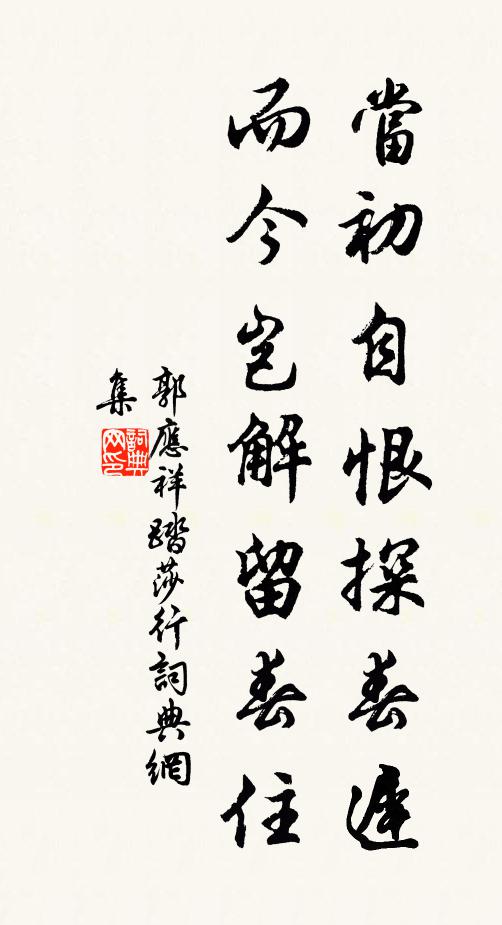 當初自恨探春遲
而今豈解留春住
郭應祥踏莎行詞典網
集
詞典网印